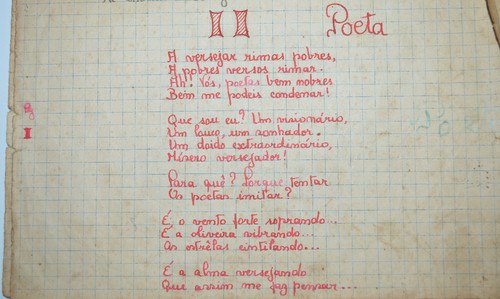 II Poeta
A versejar rimas pobres,
A pobres versos rimar.
Ah! Vós, poetas bem nobres
Bem me podeis condenar!
Que sou eu? Um visionário,
Um louco, um sonhador.
Um doido extraordinário,
Mísero versejador!
Para quê? Porque tentar
Os poetas imitar?
É o vento forte soprando...
É a oliveira vibrando...
As estrêlas cintilando...
É a alma versejando
Que assim me faz pensar...
I